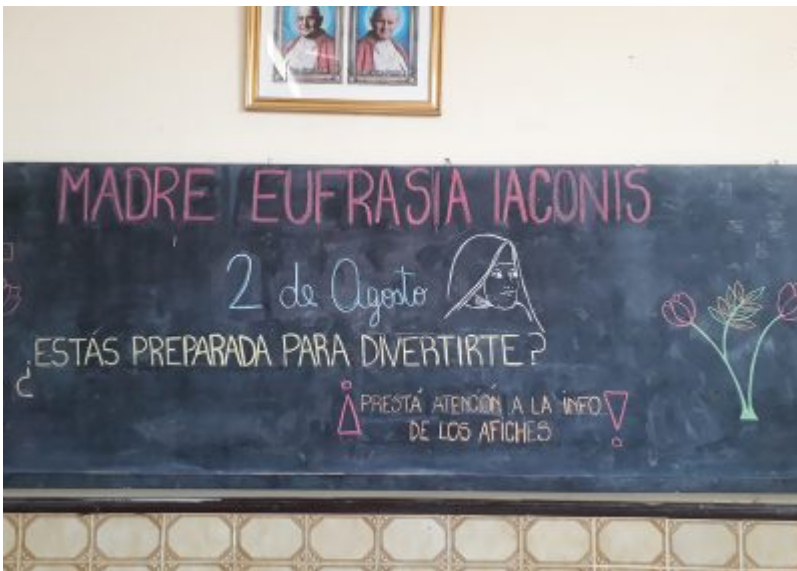 MADRE EUFRASIA IACONIS
2 de Agosto
¿ESTÁS PREPARADA PARA DIVERTIRTE?
¡PRESTÁ ATENCIÓN A LA INFO
DE LOS AFICHES!